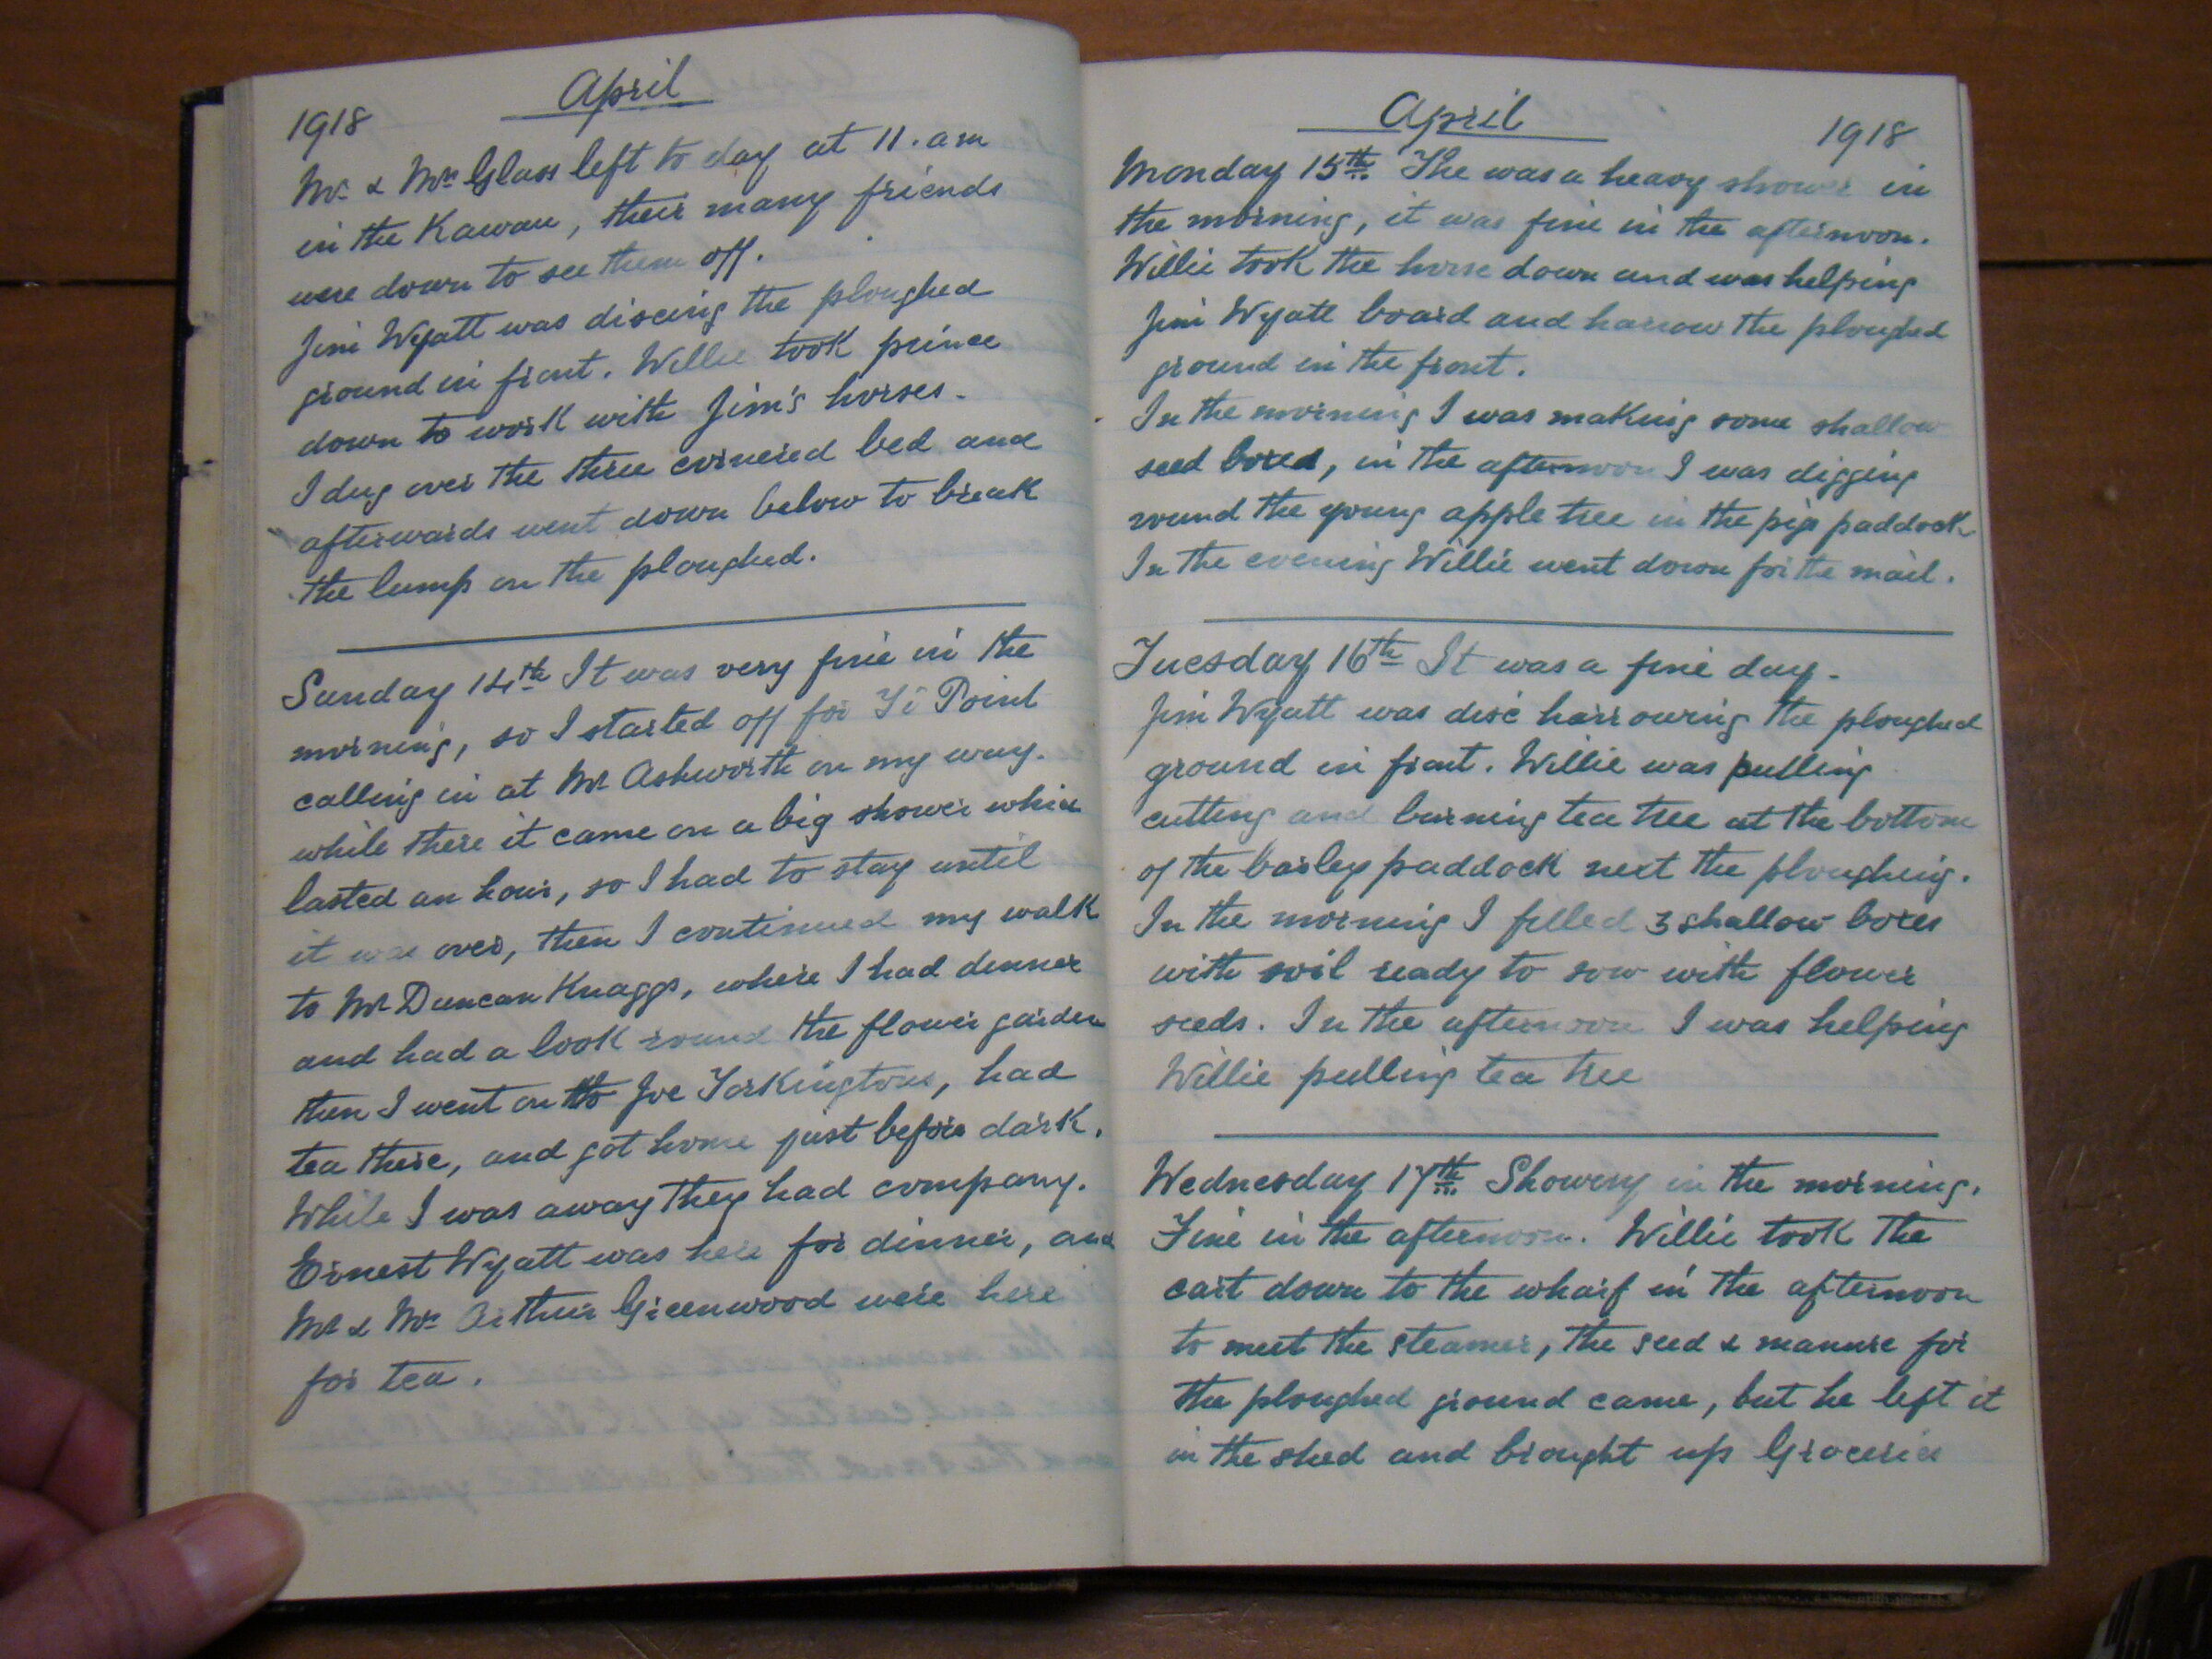 April
1918
Mr & Mrs Glass left to day at 11. am
in the Kawau, their many friends
were down to see them off.
Jim Wyatt was discing the ploughed
ground in front. Willie took prince
down to work with Jim's horses.
I dug over the three cornered bed and
afterwards went down below to break
the lump on the ploughed.
Sunday 14th It was very fine in the
morning, so I started off for Ti Point
calling in at Mr Ashworth on my way.
while there it came on a big shower which
lasted an hour, so I had to stay until
it was over, then I continued my walk
to Mr Duncan Knaggs, where I had dinner
and had a look round the flower garden
then I went on to Joe Torkingtons, had
tea there, and got home just before dark.
While I was away they had company.
Ernest Wyatt was here for dinner, and
Mr & Mrs Arthur Greenwood were here
for tea.
April
1918
Monday 15th The was a heavy shower in
the morning, it was fine in the afternoon.
Willie took the horse down and was helping
Jim Wyatt board and harrow the ploughed
ground in the front.
In the morning I was making some shallow
seed boxes, in the afternoon I was digging
round the young apple tree in the pig paddock
In the evening Willie went down for the mail.
Tuesday 16th It was a fine day.
Jim Wyatt was disc harrowing the ploughed
ground in front. Willie was pulling
cutting and burning tea tree at the bottom
of the barley paddock next the ploughing.
In the morning I filled 3 shallow boxes
with soil ready to sow with flower
seeds. In the afternoon I was helping
Willie pulling tea tree
Wednesday 17th Showery in the morning.
Fine in the afternoon. Willie took the
cart down to the wharf in the afternoon
to meet the steamer, the seed & manure for
the ploughed ground came, but he left it
in the shed and brought up Groceries